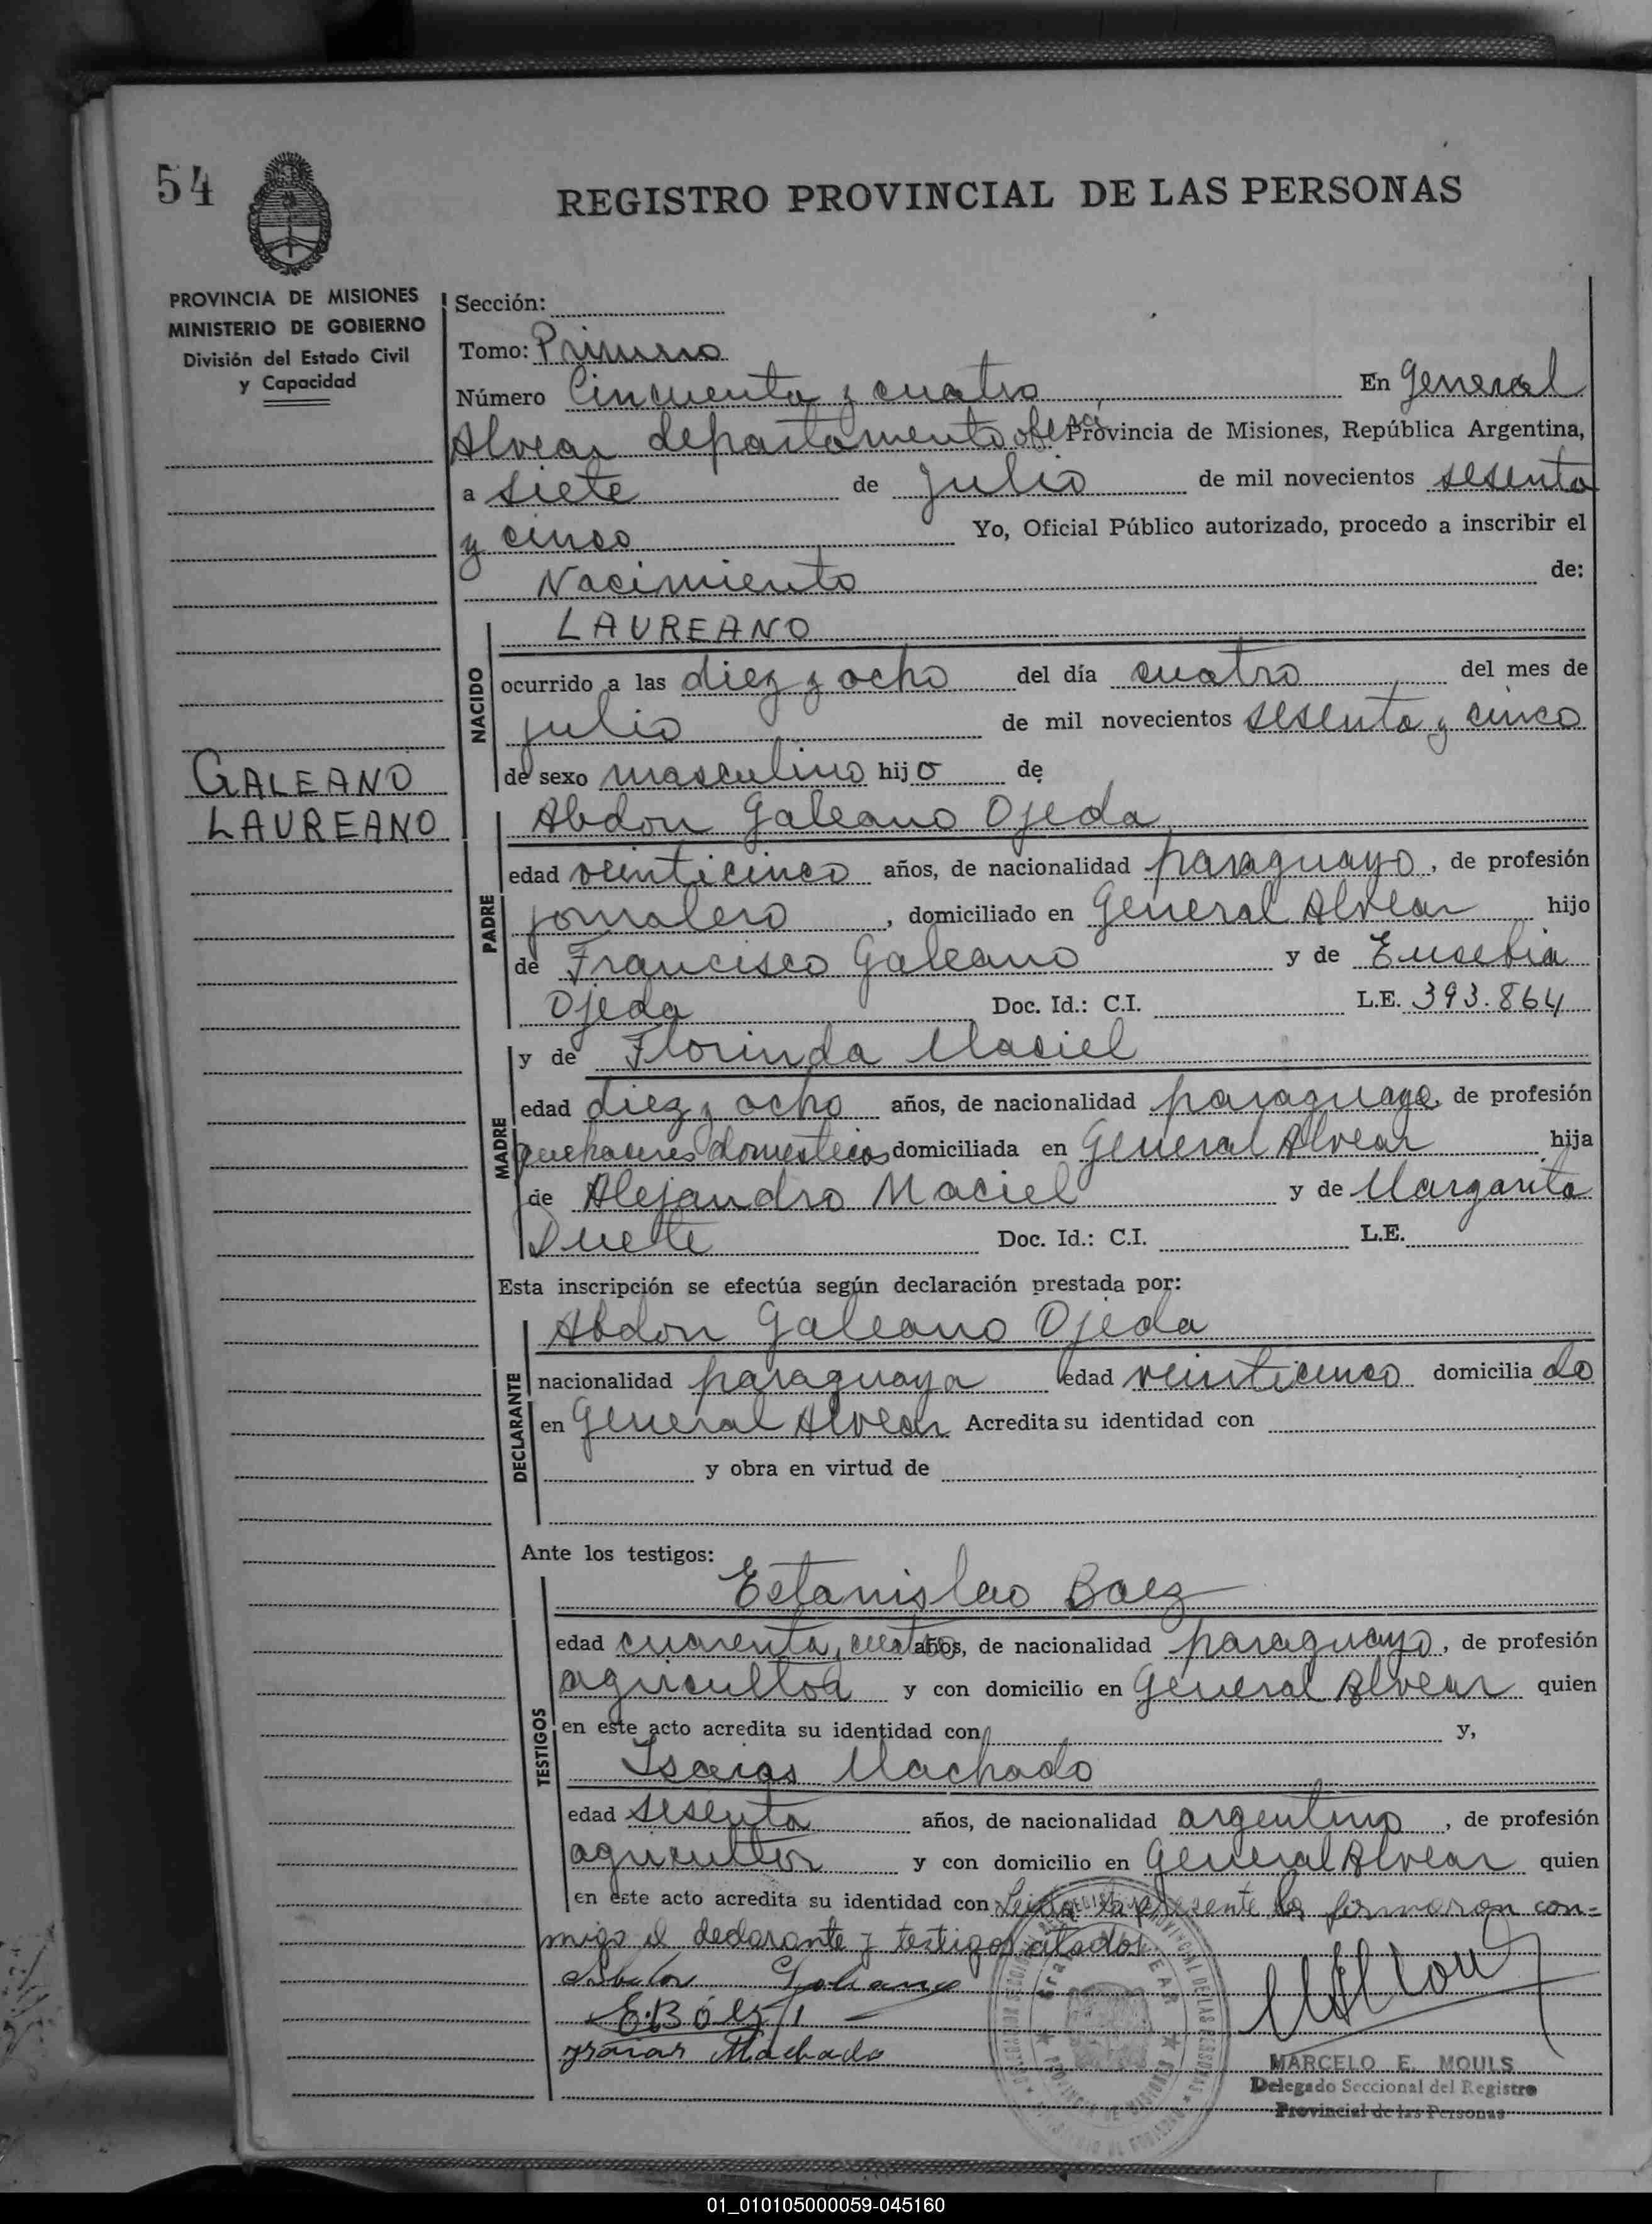 54
REGISTRO PROVINCIAL DE LAS PERSONAS
PROVINCIA DE MISIONES
MINISTERIO DE GOBIERNO
División del Estado Civil
y Capacidad
GALEANO
LAUREANO
Sección:
Tomo: Primero
Número Cincuenta y cuatro En General
Alvear departamento Provincia de Misiones, República Argentina,
a siete de Julio de mil novecientos sesenta
y cinco Yo, Oficial Público autorizado, procedo a inscribir el
Nacimiento de:
NACIDO
LAUREANO
ocurrido a las diez y ocho del día cuatro del mes de
julio de mil novecientos sesenta y cinco
de sexo masculino hijo de
PADRE
Abdon Galeano Ojeda
edad veinticinco años, de nacionalidad paraguayo, de profesión
jornalero, domiciliado en General Alvear hijo
de Francisco Galeano y de Eusebia
Ojeda Doc. Id.: C.I. L.E. 393.864
MADRE
y de Florinda Maciel
edad diez y ocho años, de nacionalidad paraguaya, de profesión
quehaceres domesticos domiciliada en General Alvear hija
de Alejandro Maciel y de Margarita
Duete Doc. Id.: C.I. L.E.
Esta inscripción se efectúa según declaración prestada por:
DECLARANTE
Abdon Galeano Ojeda
nacionalidad paraguaya edad veinticinco domiciliado
en General Alvear Acredita su identidad con
y obra en virtud de
Ante los testigos:
TESTIGOS
Estanislao Baez
edad cuarenta y cuatro años, de nacionalidad paraguayo, de profesión
agricultor y con domicilio en General Alvear quien
en este acto acredita su identidad con y,
Isaias Machado
edad sesenta años, de nacionalidad argentino, de profesión
agricultor y con domicilio en General Alvear quien
en este acto acredita su identidad con Leida la presente la firmaron con=
migo el declarante y testigos citados
E. Báez
Isaias Machado
MARCELO E. MOULS
Delegado Seccional del Registro
Provincial de las Personas
01_010105000059-045160